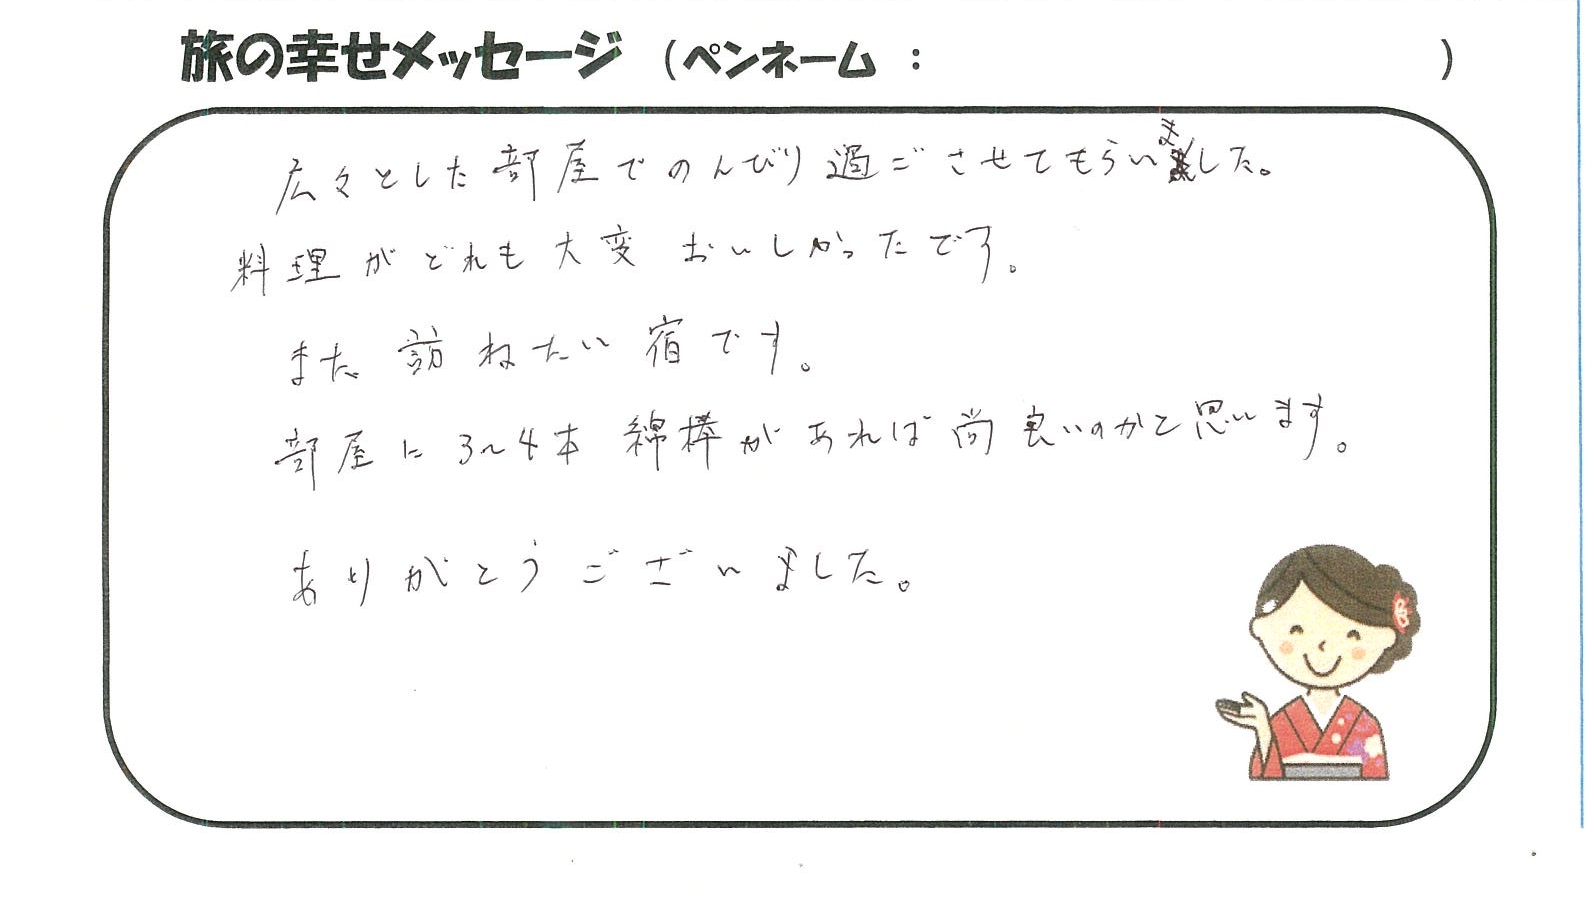 旅の幸せメッセージ （ペンネーム：　　　　　）
広々とした部屋でのんびり過ごさせてもらいました。
料理がどれも大変おいしかったです。
また訪ねたい宿です。
部屋に3～4本綿棒があれば尚良いのかと思います。
ありがとうございました。